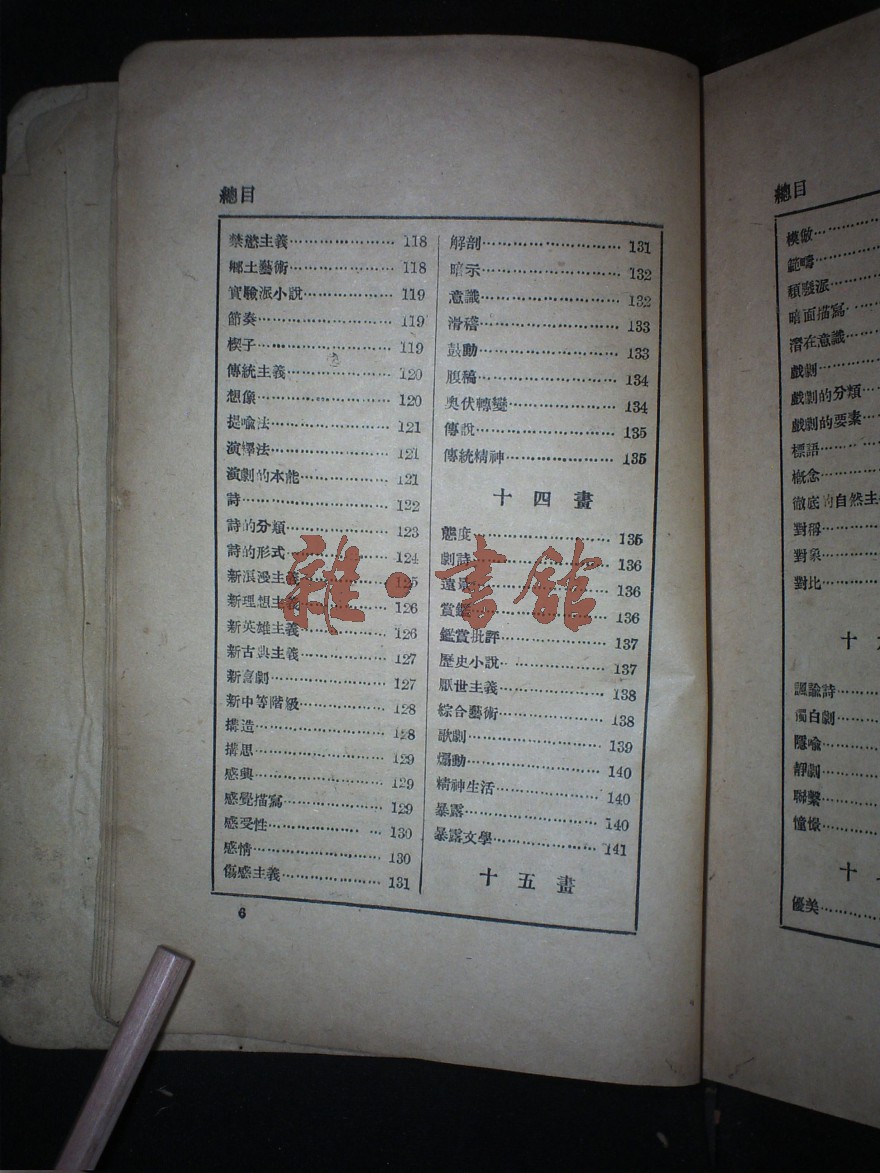 總目
禁慾主義…………………118
鄉土藝術…………………118
實驗派小說………………119
節奏………………………119
楔子………………………119
傳統主義…………………120
想像………………………120
提喻法……………………121
演繹法……………………121
演劇的本能………………121
詩…………………………122
詩的分類…………………123
詩的形式…………………124
新浪漫主義………………125
新理想主義………………126
新英雄主義………………126
新古典主義………………127
新喜劇……………………127
新中等階級………………128
構造………………………128
構思………………………129
感興………………………129
感覺描寫…………………129
感受性……………………130
感情………………………130
傷感主義…………………131
解剖………………………131
暗示………………………132
意識………………………132
滑稽………………………133
鼓動………………………133
腹稿………………………134
奧伏轉變…………………134
傳說………………………135
傳統精神…………………135
十四畫
態度………………………135
劇詩………………………136
遠景………………………136
賞鑑………………………136
鑑賞批評…………………137
歷史小說…………………137
厭世主義…………………138
綜合藝術…………………138
歌劇………………………139
煽動………………………140
精神生活…………………140
暴露………………………140
暴露文學…………………141
十五畫
6
總目
模倣…………
範疇…………
頹廢派………
暗面描寫……
潛在意識……
戲劇…………
戲劇的分類…
戲劇的要素…
標語…………
概念…………
徹底的自然主
對稱…………
對象…………
對比…………
十
諷諭詩………
獨白劇………
隱喻…………
靜劇…………
聯繫…………
憧憬…………
十
優美…………
雜·書館